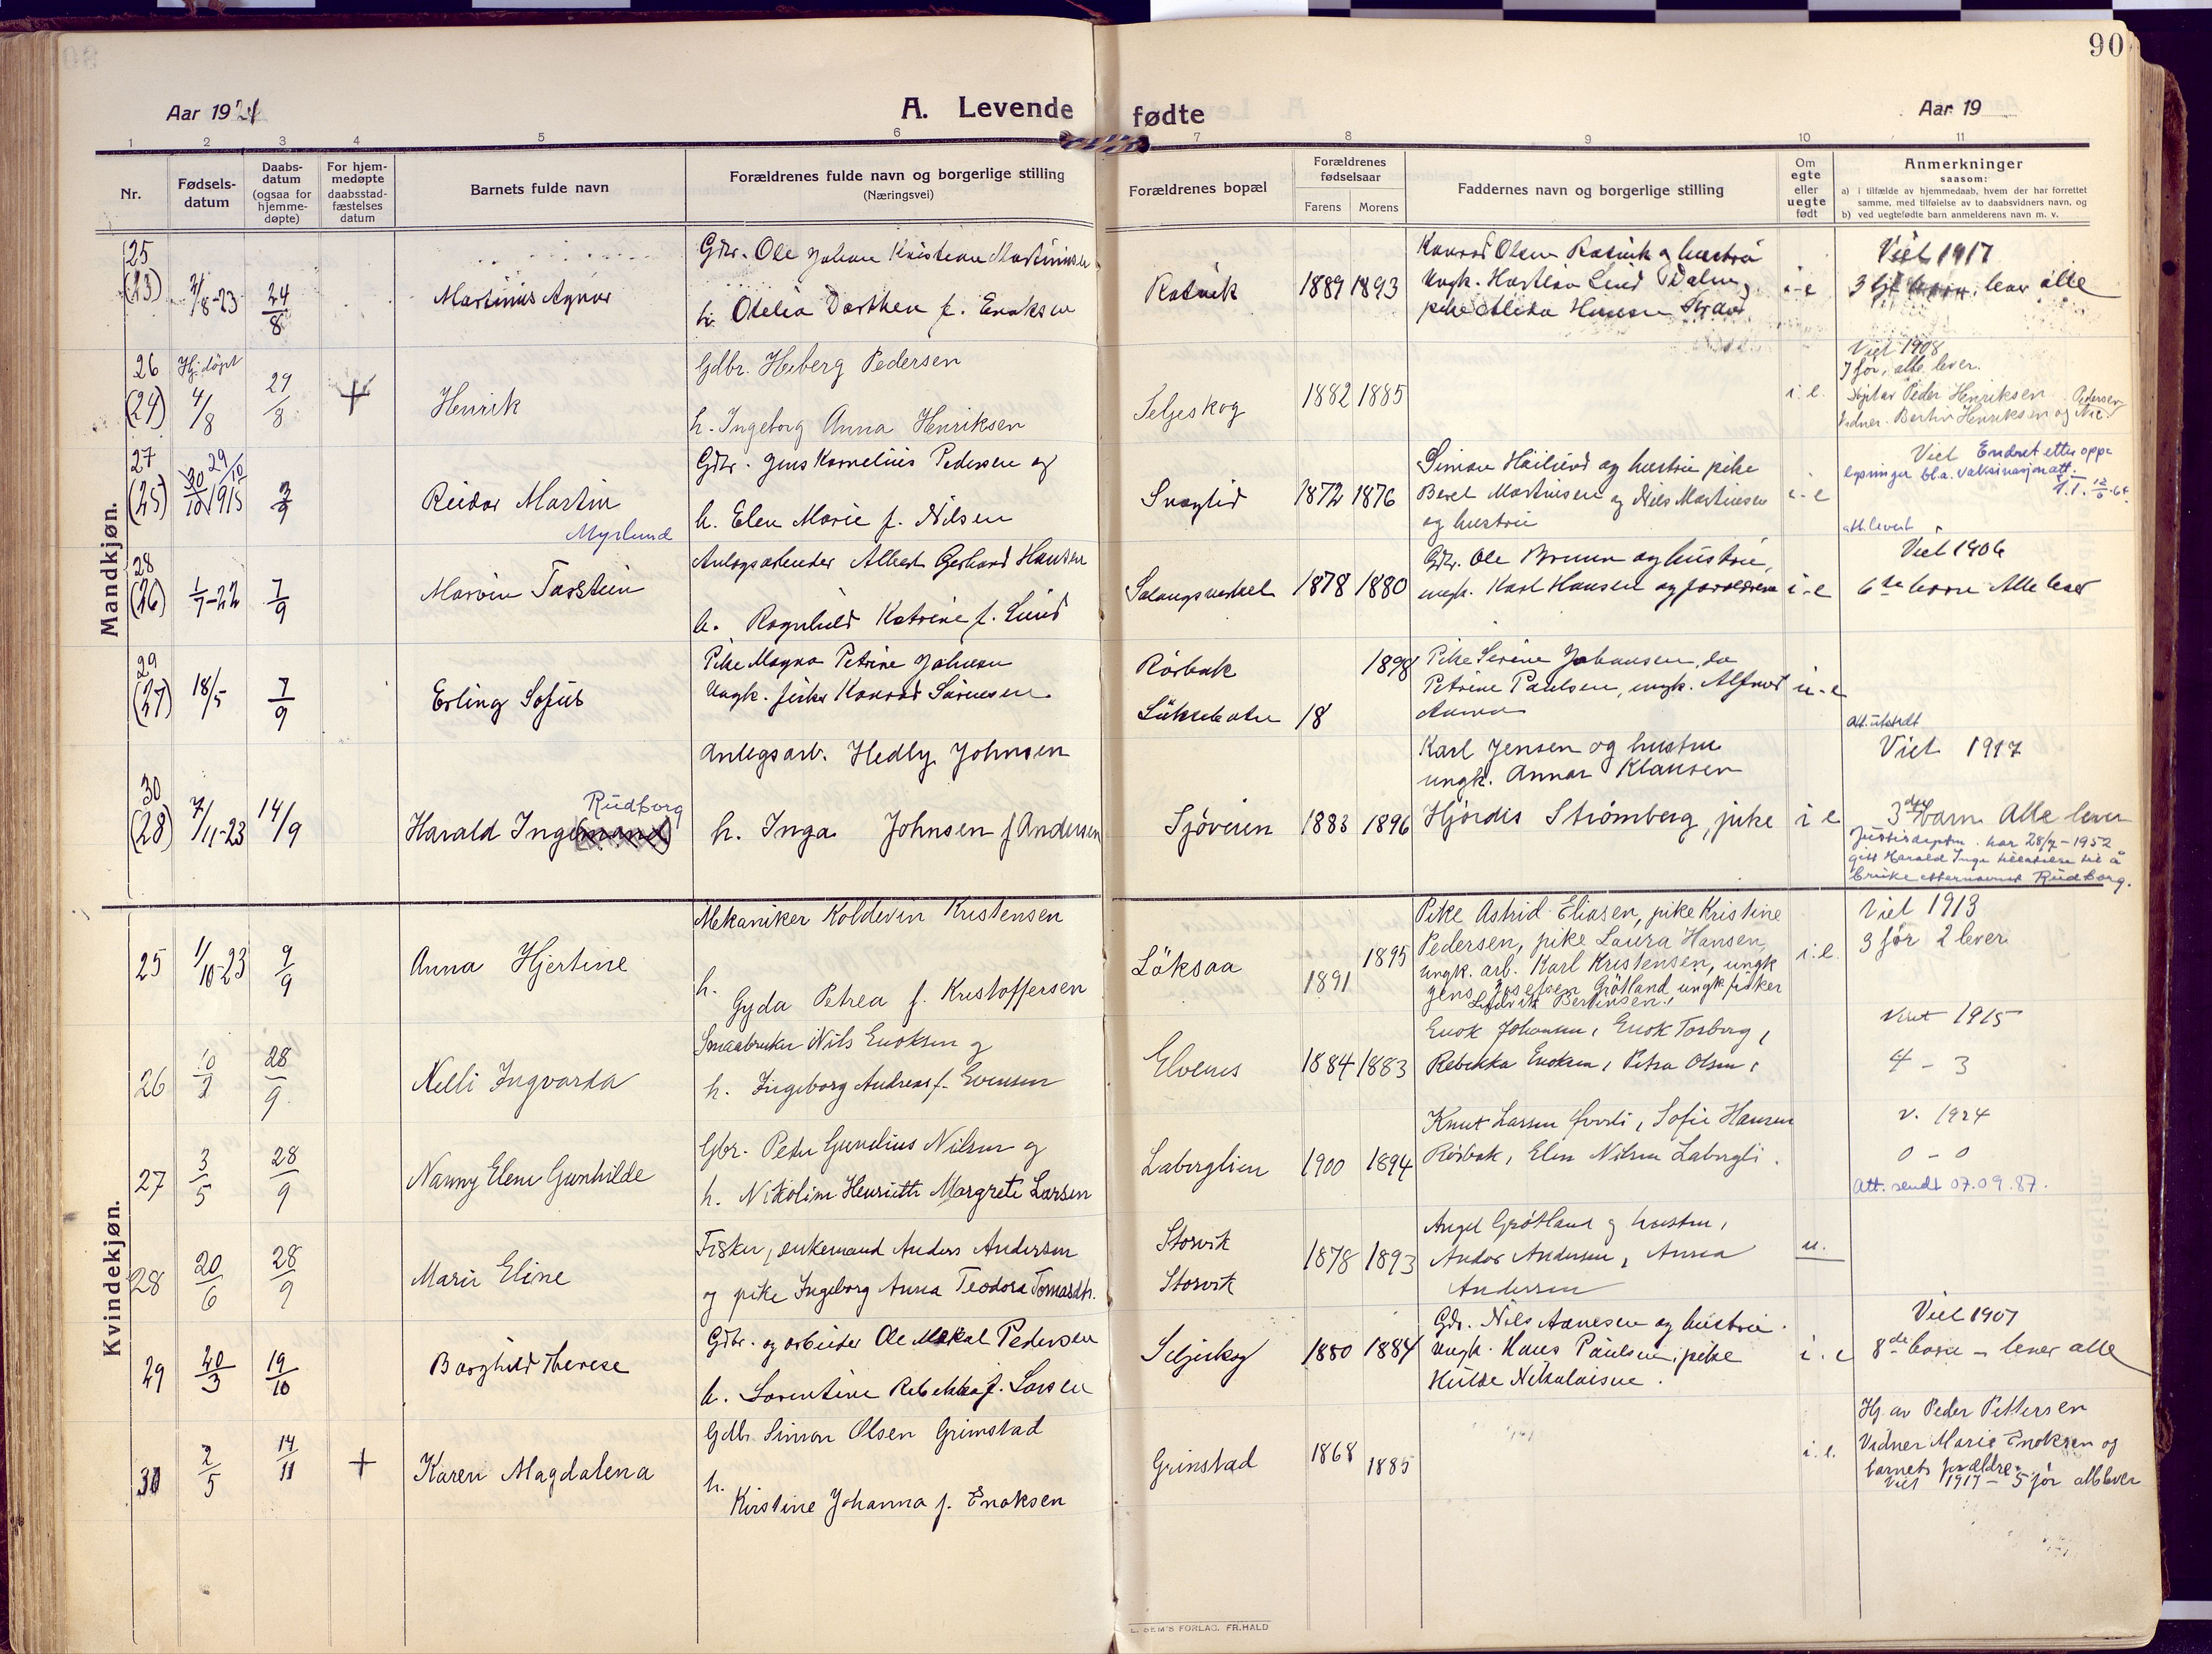 90
Aar 1924
A. Levende fødte
Aar 19
1 2 3 4 5 6 7 8 9 10 11
Nr.
Fødsels-datum
Daabs-datum (ogsaa for hjemme-døpte)
For hjem-medøpte daabsstad-fæstelses datum
Barnets fulde navn
Forældrenes fulde navn og borgerlige stilling
(Næringsvei)
Forældrenes bopæl
Forældrenes fødselsaar
Farens Morens
Faddernes navn og borgerlige stilling
Om egte eller uegte født
Anmerkninger
saasom:
a) i tilfælde av hjemmedaab, hvem der har forrettet samme, med tilføielse av to daabsvidners navn, og
b) ved uegtefødte barn anmelderens navn m. v.
Mandkjøn.
25 (23) 24/8 Martinus Agnar
Gdbr. Ole Johan Kristian Martinussen
h. Otelia Dorthea f. Enoksen
Ratvik 1889 1893
Konrad Olsen Ratvik og hustru
i-e
Viet 1917
lever alle
26 (24) Hj. døpt 4/8 29/8 + Henrik
Gdbr. Heberg Pedersen
h. Ingeborg Anna Henriksen
Seljeskog 1882 1885
i.e.
Viet 1908
7 før, alle lever.
Døptav Peder Henriksen
Vidner. Bertin Henriksen og Nic. Pedersen
27 (25) 30/10 1915 29/10 Reidar Martin
Myrlund
Gdbr. Jens Kornelius Pedersen og
h. Elen Marie f. Nilsen
1872 1876
Simon Heilund og hustru pike
Beret Martinsen og Nils Martinsen
og hustru
i-e
Viet Endret etter opp-
lysninger bl.a. vaksinasjonatt.
att. levert
28 (26) 1/7-22 7/9 Marvin Torstein
Anlegsarbeider Albert Gerhard Hansen
h. Ragnhild Katrine f. Lund
Salangsverket 1878 1880
Gdbr. Ole Bruun og hustru,
ungk. Karl Hansen og foreldrene
i-e
Viet 1906
6te barn Alle lever
29 (27) 18/5 7/9 Erling Sofus
Pike Magna Petrine Johnsen
Ungk. fisker Konrad Sørensen
Rørbak 1898
Luksebotn 18
Pike Serine Johansen, do
Petrine Paulsen, ungk. Alfred
u-e
Att. utstedt
30 (28) 7/11-23 14/9 Harald Inge Rudborg
Anlegsarb. Hedly Johnsen
h. Inga Johnsen f Andersen
Sjøveien 1883 1896
Karl Jensen og hustru
ungk. Annar Klausen
Hjørdis Strømberg, pike
i e
Viet 1917
3dje barn Alle lever
Justisdeptm. har 28/7-1952
gitt Harald Inge tillatelse til å
bruke etternavnet Rudborg.
Kvindekjøn.
25 1/10-23 9/9 Anna Hjertine
Mekaniker Koldevin Kristensen
h. Gyda Petrea f. Kristoffersen
Löksaa 1891 1895
Pike Astrid Eliasen, pike Kristine
Pedersen, pike Laura Hansen,
ungk. arb. Karl Kristensen, ungk
Jens Josefsen Grötland ungk fisker
Ludvik Berthinsen.
i.e.
Viet 1913
3 før 2 lever
26 28/9 Nelli Ingvarda
Smaabruker Nils Enoksen og
h. Ingeborg Andrea f. Evensen
Elvenes 1884 1883
Enok Johansen, Enok Torberg,
Rebekka Enoksen, Petra Olsen,
Viet 1915
4 - 3
27 3/5 28/9 Nanny Elene Gunhilde
Gbr. Peder Gunelius Nilsen og
h. Nikoline Henriette Margrete Larsen
Laberglien 1900 1894
Knut Larsen, Sofie Hansen
Rørbak, Elen Nilsen Labergli.
v. 1924
0 - 0
Att. sendt 07.09.87.
28 20/6 28/9 Marie Eline
Fisker, enkemand Anders Andersen
og pike Ingeborg Anna Teodora Tomasdtr.
Storvik
Storvik 1878 1893
Angel Grøtland og hustru,
Andor Andersen, Anna
Andersen
u.
29 20/3 19/10 Borghild Therese
Gdbr. og arbeider Ole Mikal Pedersen
h. Sorentine Rebekka f. Larsen
Seljeskog 1880 1884
Gdr. Nils Aanesen og hustru.
Ungk. Hans Paulsen, pike
Hulde Nikolaisen.
i.e
Viet 1907
8de barn - lever alle
30 2/5 14/11 + Karen Magdalena
Gdbr Simon Olsen Grimstad
h. Kirstine Johanna f. Enoksen
Grimstad 1868 1885
i.e.
Hj. av Peder Pettersen
Vidner Marie Enoksen og
barnets forældre.
Viet 1917 - 5 før alle lever
E. SEM'S FORLAG, FR.HALD